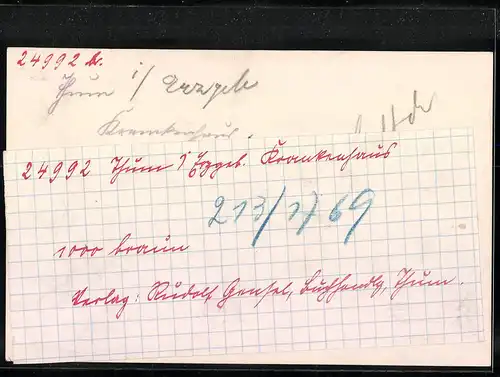 24992 b.
Thum i/ Erzgeb
Krankenhaus.
24992 Thum i Erzgeb. Krankenhaus
213/1769
1000 braun
Verlag: Rudolf Gensel, Buchhandlg, Thum.